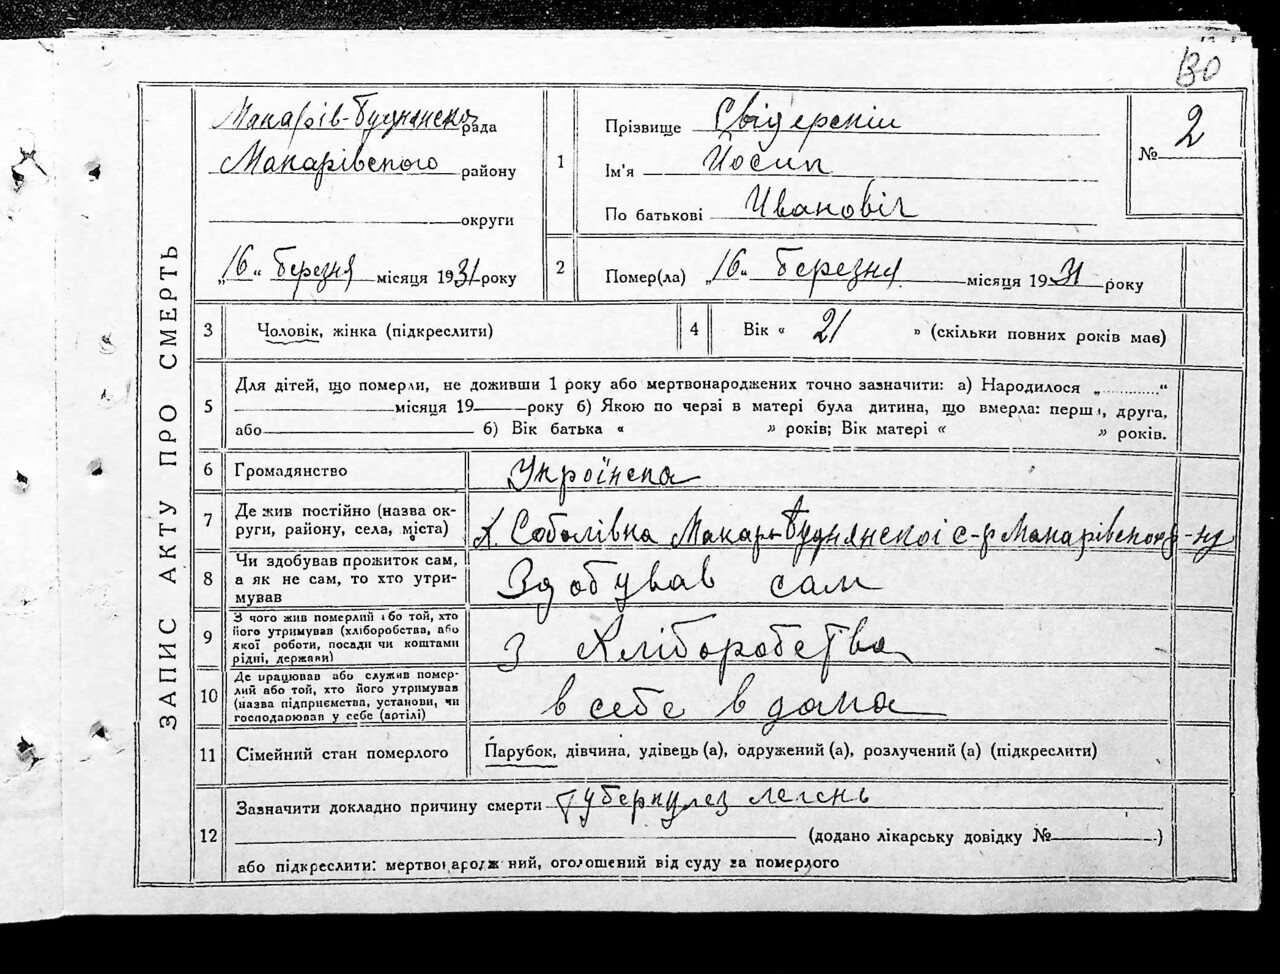 130
ЗАПИС АКТУ ПРО СМЕРТЬ
Макарів-Буднянска рада
Макарівского району
округи
„16“ березня місяця 1931 року
1
Прізвище Свідерскии
Ім'я Йосип
По батькові Ивановіч
№ 2
2
Помер(ла) „16“ березня місяця 1931 року
3 Чоловік, жінка (підкреслити)
4 Вік « 21 » (скільки повних років мав)
5
Для дітей, що померли, не доживши 1 року або мертвонароджених точно зазначити: а) Народилося „..........“
місяця 19 року б) Якою по черзі в матері була дитина, що вмерла: перша, друга,
або б) Вік батька « » років; Вік матері « » років.
6 Громадянство Українска
7
Де жив постійно (назва ок-
руги, району, села, міста)
х. Соболівка Макар-Буднянскоі с-р Макарівского р-ну
8
Чи здобував прожиток сам,
а як не сам, то хто утри-
мував
Здобував сам
9
З чого жив померлий або той, хто
його утримував (хліборобства, або
якої роботи, посади чи коштами
рідні, держави)
З Хліборобства
10
Де працював або служив помер-
лий або той, хто його утримував
(назва підприємства, установи, чи
господарював у себе (артілі)
в себе в дома
11 Сімейний стан померлого Парубок, дівчина, удівець (а), одружений (а), розлучений (а) (підкреслити)
12
Зазначити докладно причину смерти Губеркулез легень
(додано лікарську довідку № )
або підкреслити: мертвонароджений, оголошений від суду за померлого